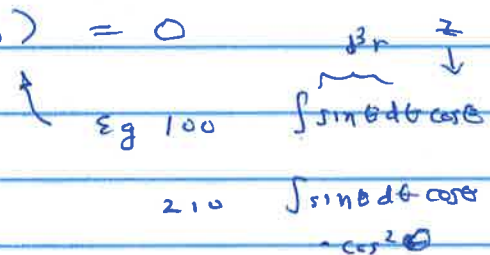 ) = 0
d³r z
Eg 100 ∫ sinθdθ cosθ
210 ∫ sinθdθ cosθ
· cos²θ